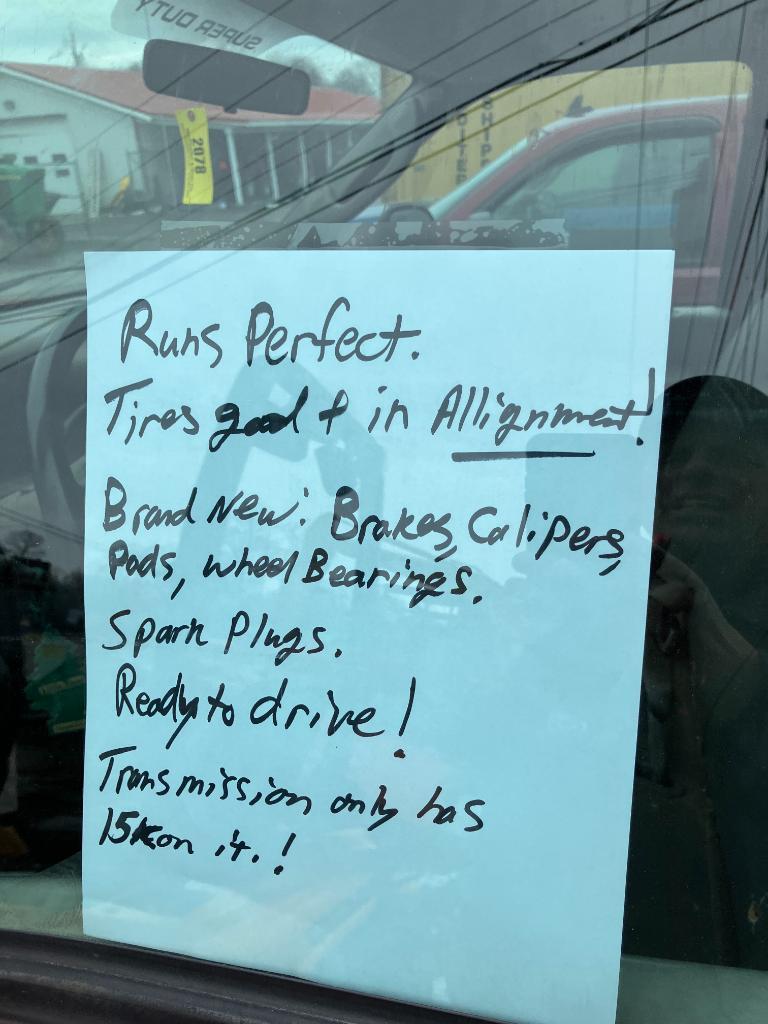 SUPER DUTY
2078
SHIP
Runs Perfect.
Tires good + in Allignment!
Brand New: Brakes, Calipers,
Pads, wheel Bearings.
Spark Plugs.
Ready to drive!
Transmission only has
15K on it.!